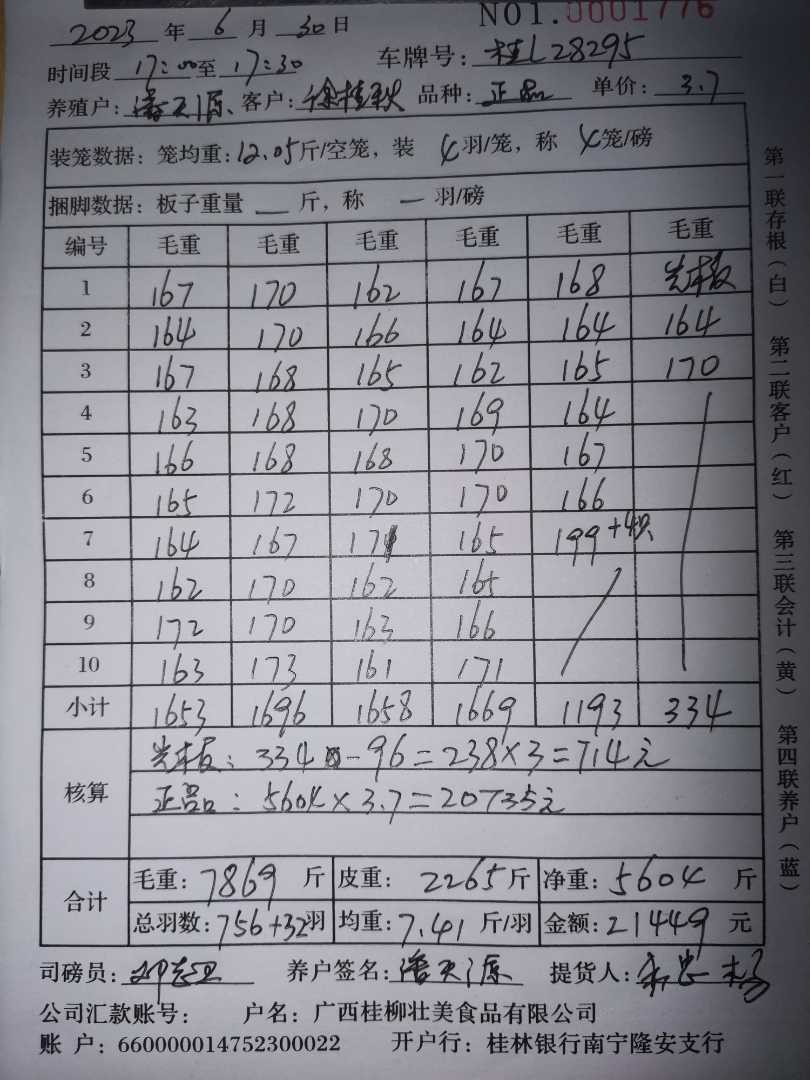 NO1.0001776
2023 年 6 月 30 日
时间段 17:00 至 17:30 车牌号: 桂L28295
养殖户: 潘天源、 客户: 徐桂秋 品种: 正品 单价: 3.7
装笼数据: 笼均重: 12.05 斤/空笼, 装 4 羽/笼, 称 4 笼/磅
捆脚数据: 板子重量 — 斤, 称 — 羽/磅
编号 毛重 毛重 毛重 毛重 毛重 毛重
1 167 170 162 167 168 光本板
2 164 170 166 164 164 164
3 167 168 165 162 165 170
4 163 168 170 169 164
5 166 168 168 170 167
6 165 172 170 170 166
7 164 167 171 165 199+4只
8 162 170 162 165
9 172 170 163 166
10 163 173 161 171
小计 1653 1696 1658 1669 1193 334
核算 光本板: 334-96=238×3=714元
正品: 5604×3.7=20735元
合计 毛重: 7869 斤 皮重: 2265 斤 净重: 5604 斤
总羽数: 756+32 羽 均重: 7.41 斤/羽 金额: 21449 元
司磅员: 养户签名: 潘天源 提货人:
公司汇款账号: 户名: 广西桂柳壮美食品有限公司
账 户: 660000014752300022 开户行: 桂林银行南宁隆安支行
第一联存根(白) 第二联客户(红) 第三联会计(黄) 第四联养户(蓝)